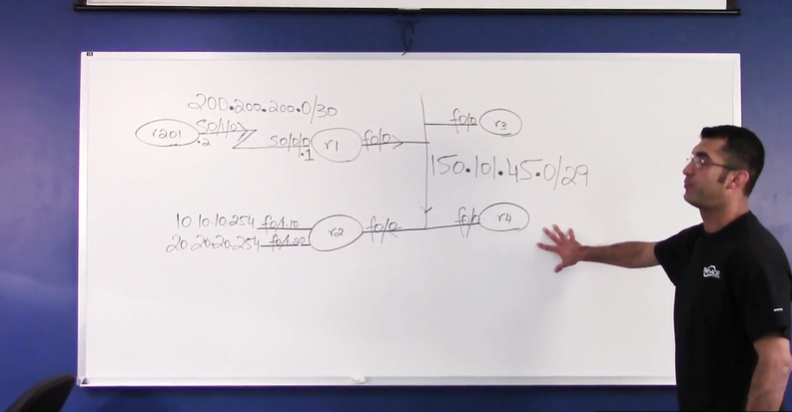 200.200.200.0/30
r201 S0/1/0 .2
S0/0/0 .1 r1 f0/0
f0/0 r3
150.101.45.0/29
10.10.10.254 f0/1.10
20.20.20.254 f0/1.20
r2 f0/0
f0/0 r4